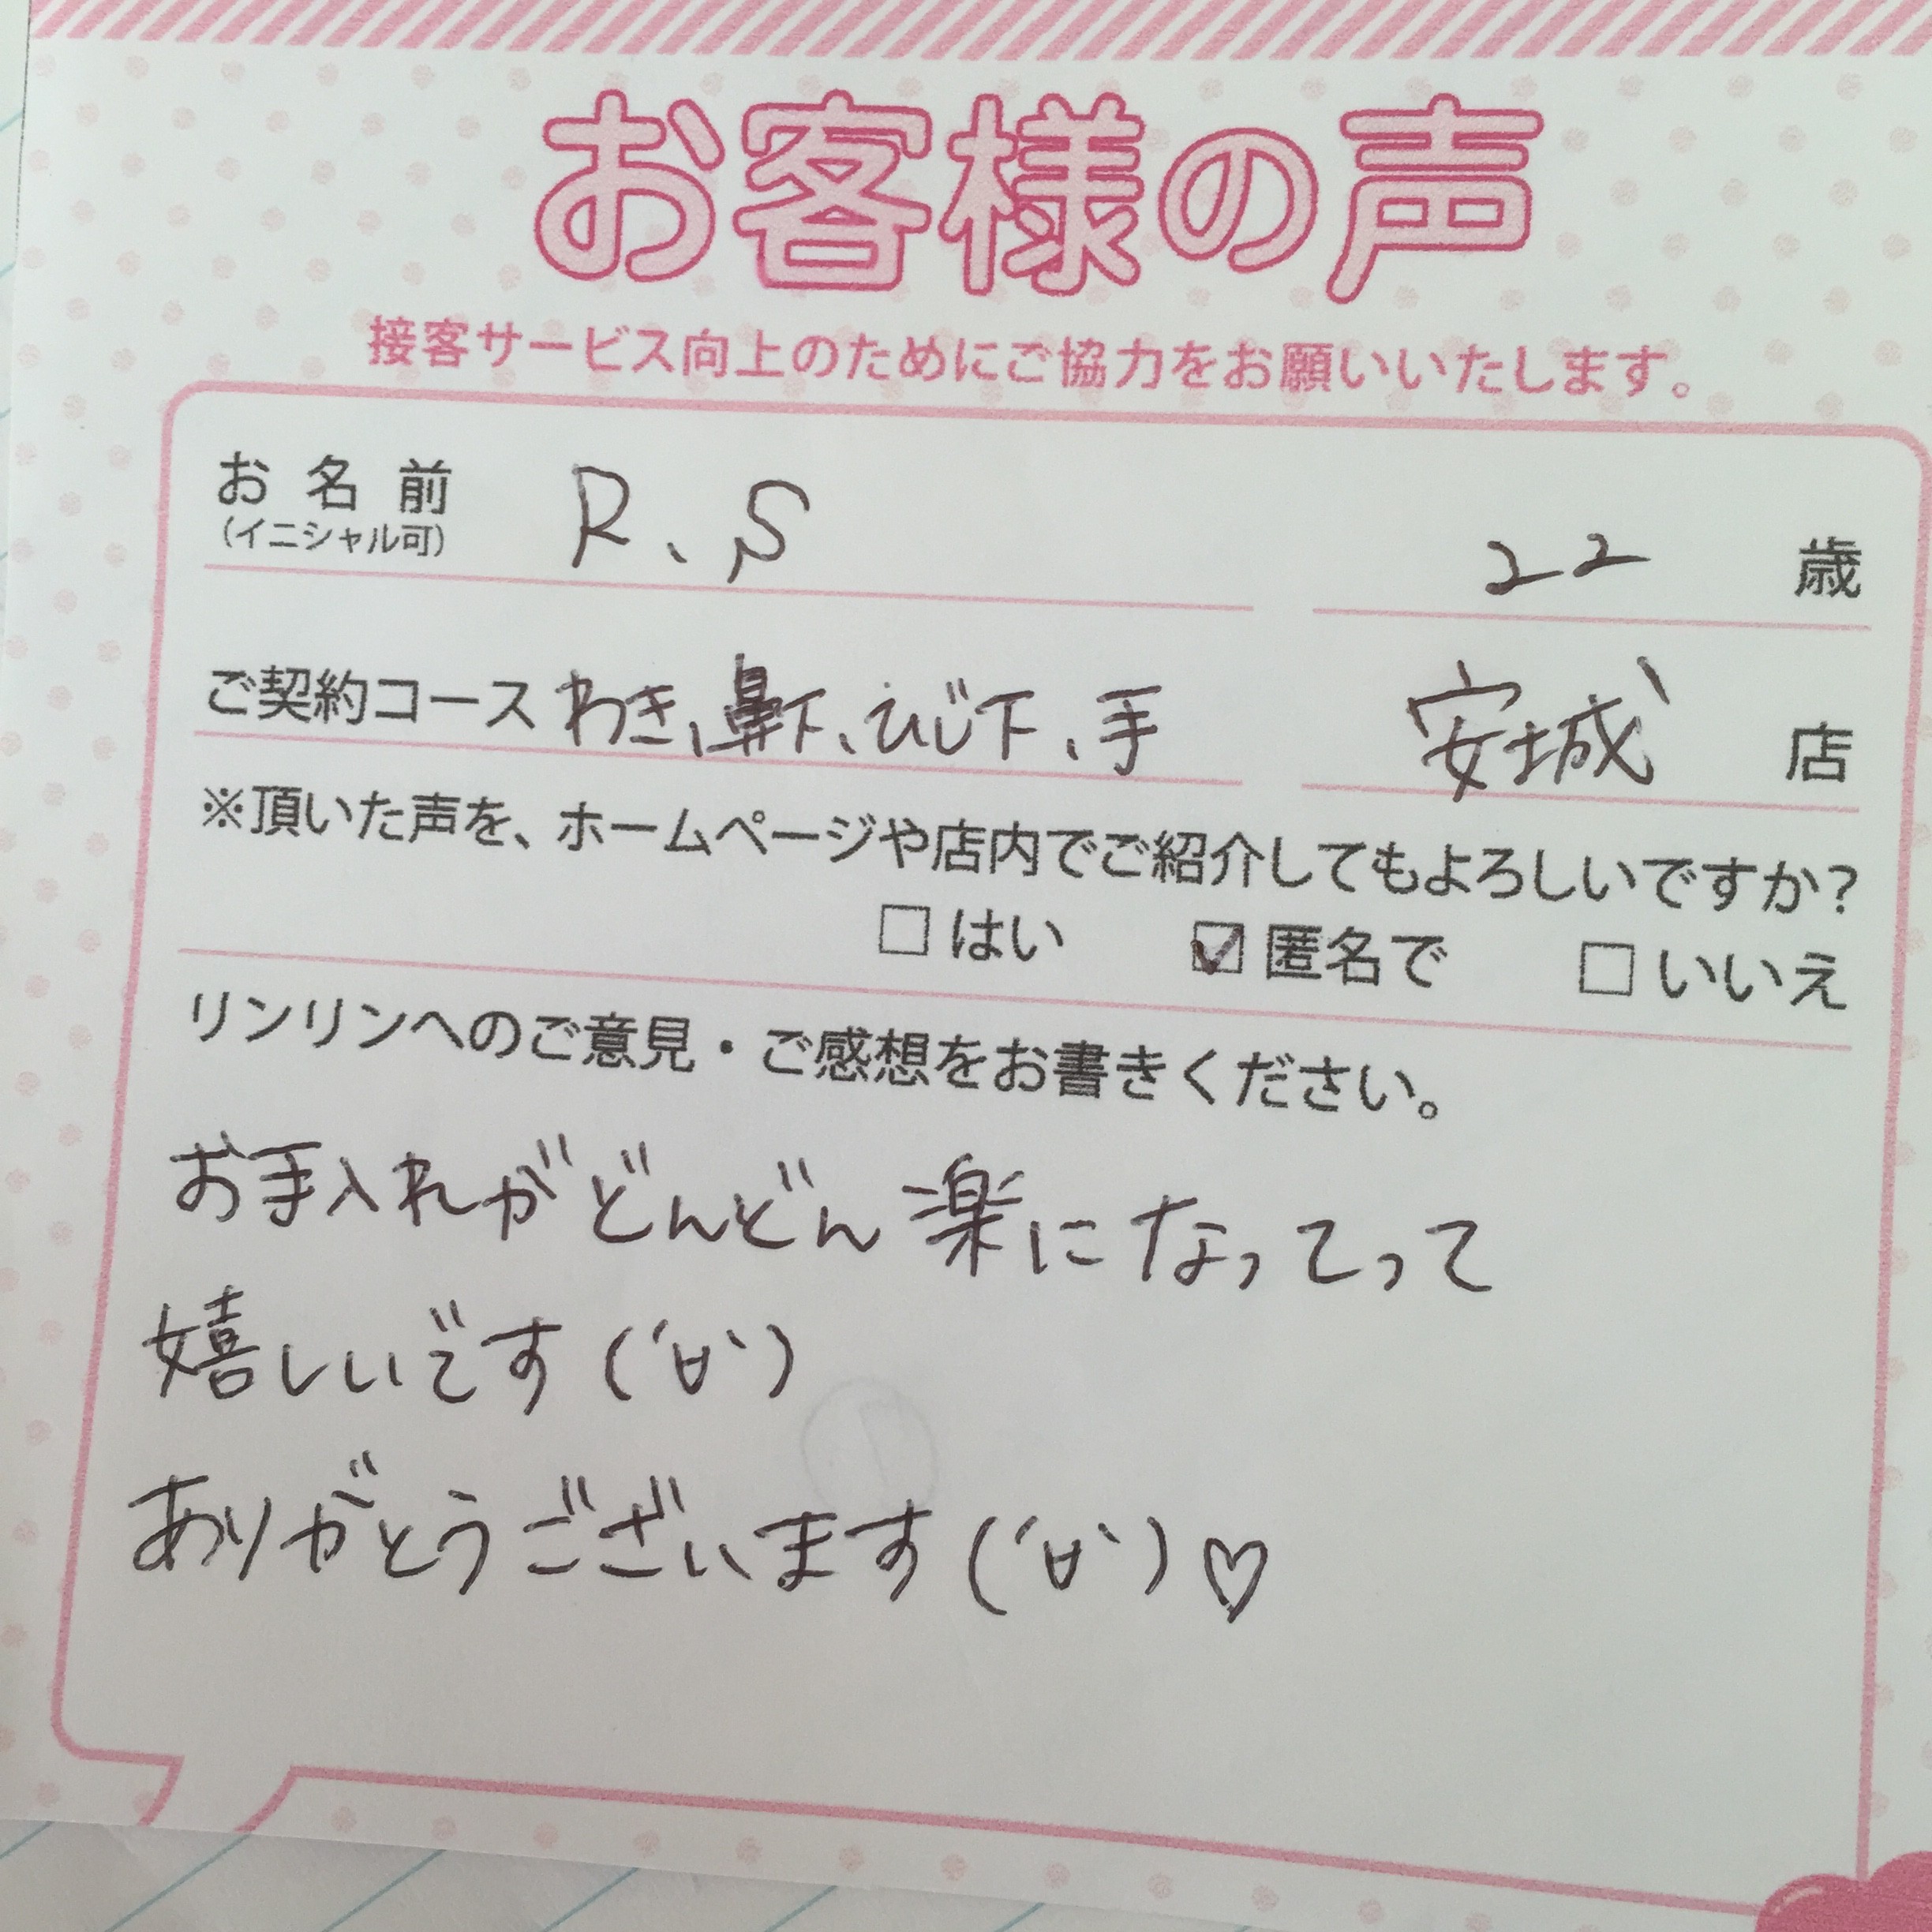 お客様の声
接客サービス向上のためにご協力をお願いいたします。
お名前 R、S 22 歳
(イニシャル可)
ご契約コース わき、鼻下、ひじ下、手 安城 店
※頂いた声を、ホームページや店内でご紹介してもよろしいですか?
□はい ☑匿名で □いいえ
リンリンへのご意見・ご感想をお書きください。
お手入れがどんどん楽になってって
嬉しいです('∀`)
ありがとうございます('∀`)♡